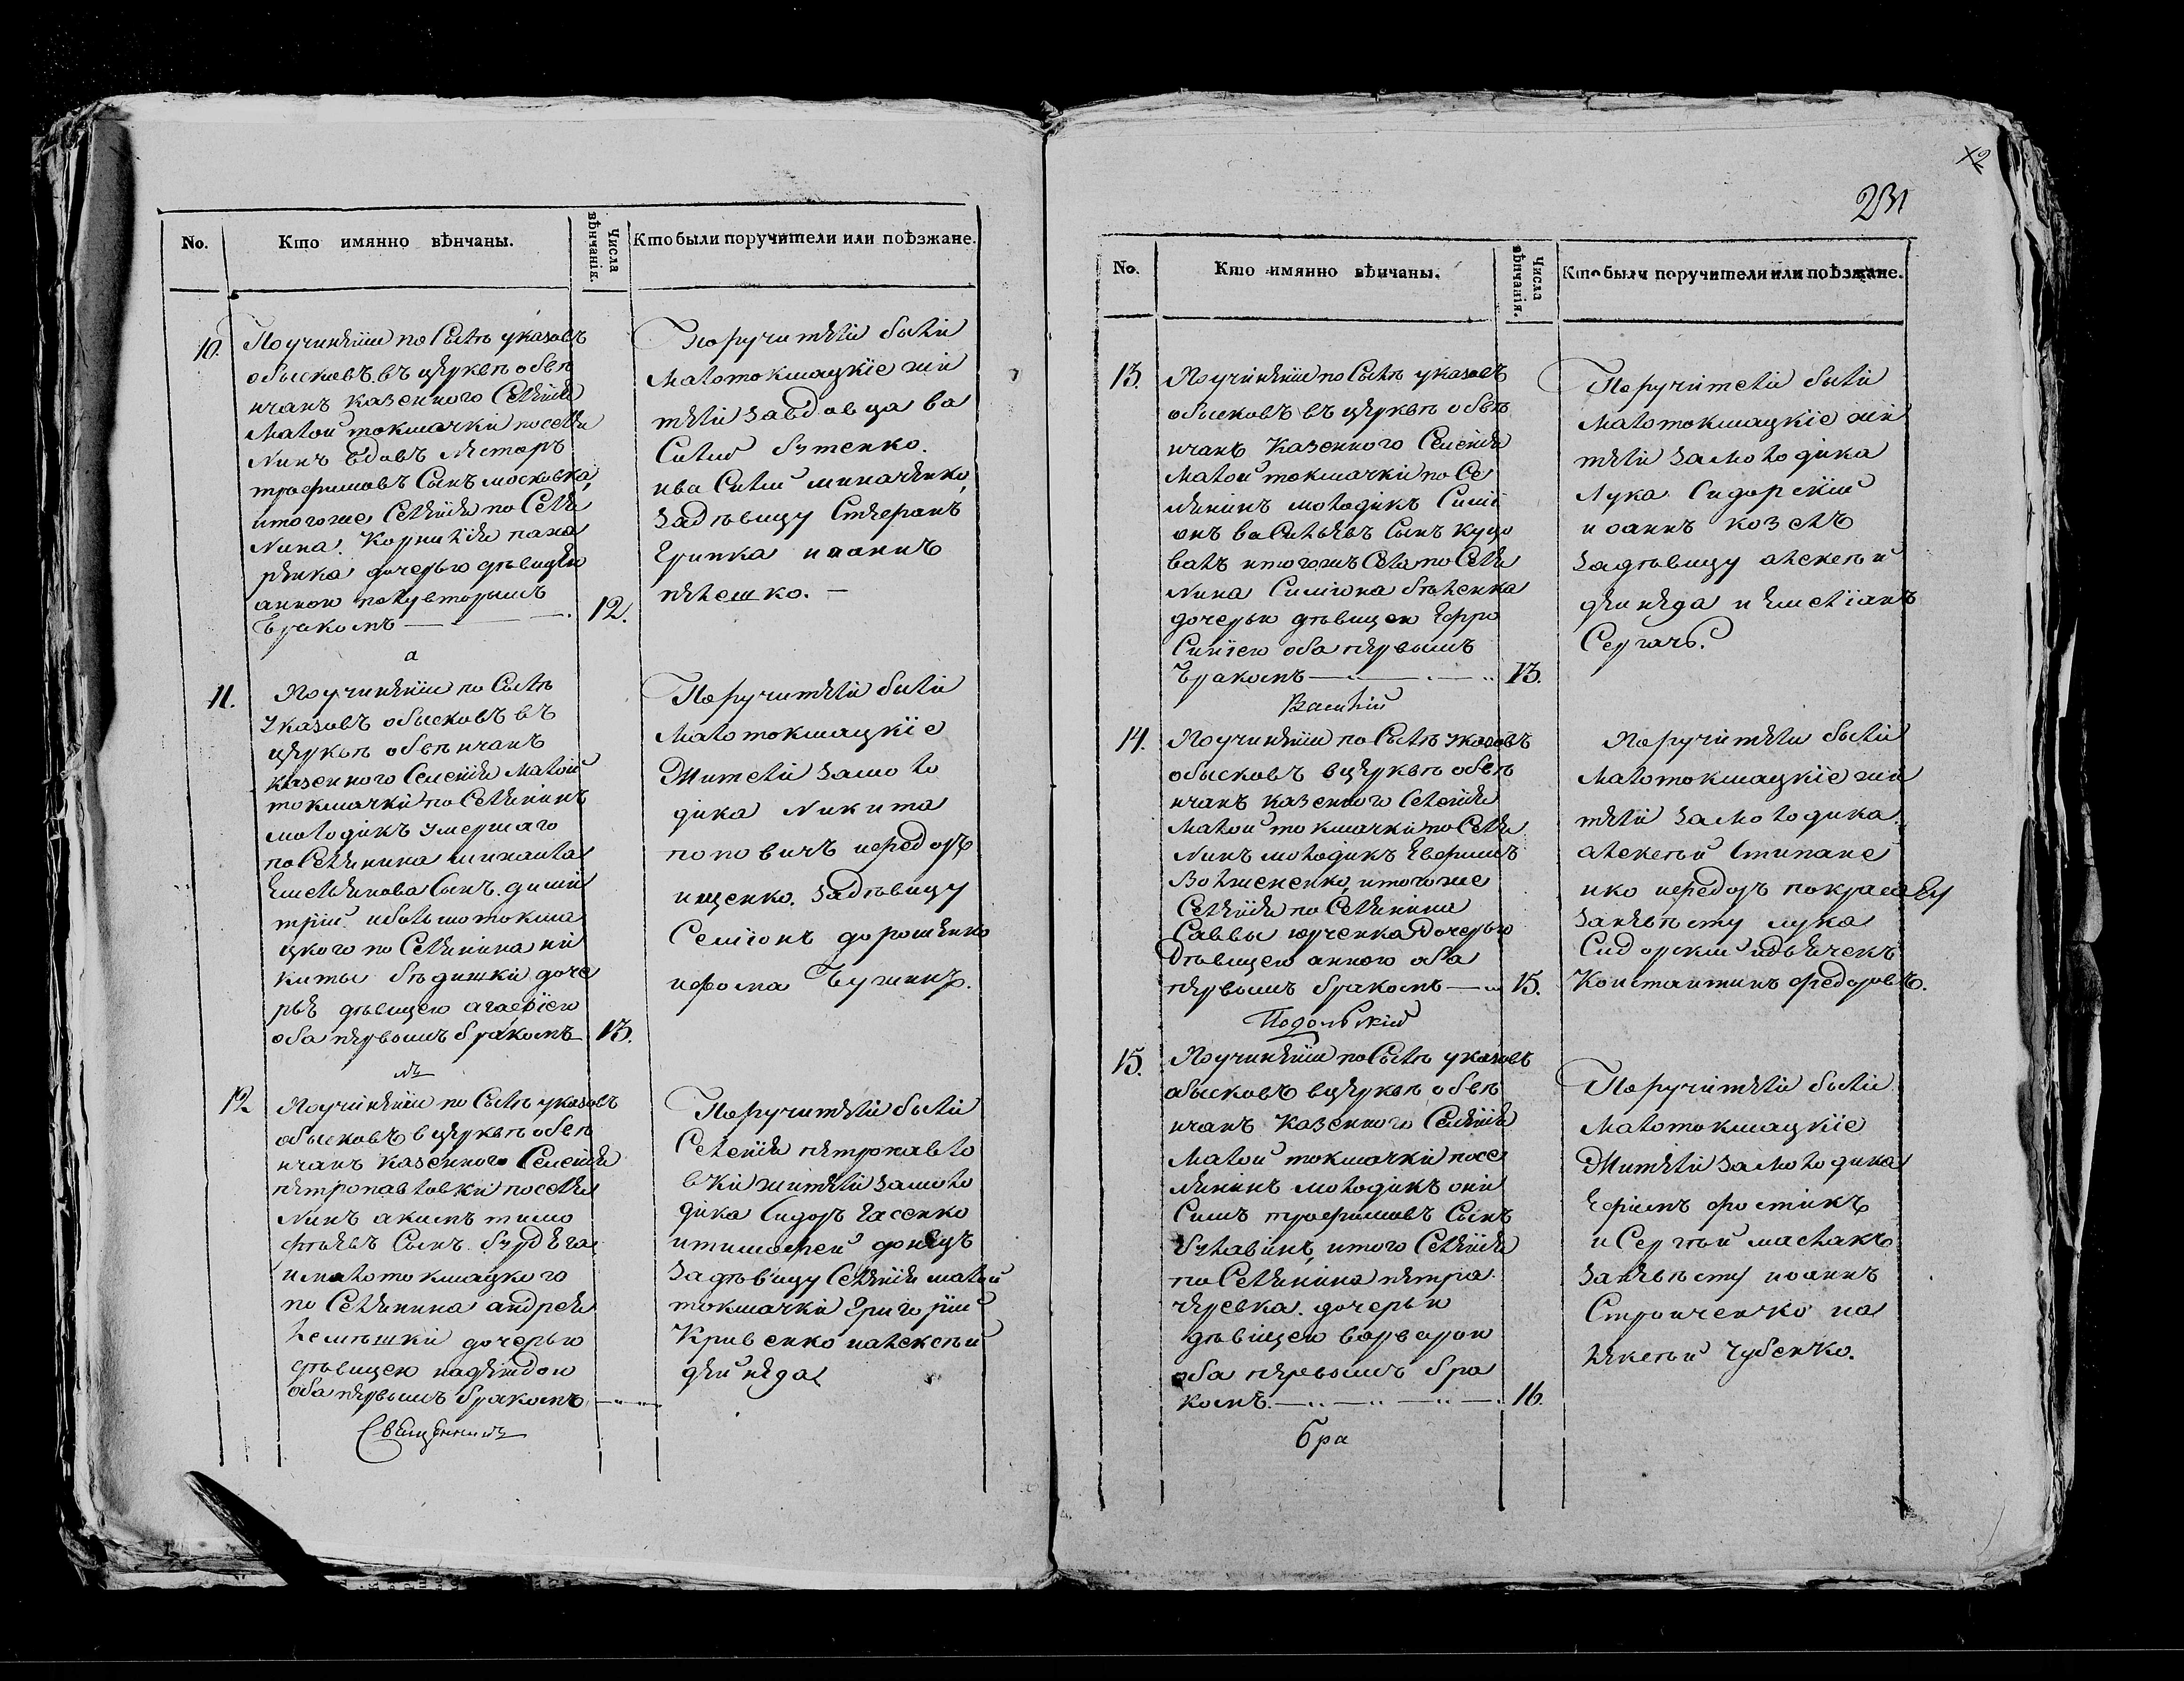 No.
Кто имянно вѣнчаны.
Числа вѣнчанія.
Кто были поручители или поѣзжане.
10.
По учинѣніи по Силѣ указовъ
обысковъ въ церквѣ обвѣ
нчанъ казенного Селѣнія
Малой токмачки поселя
нинъ вдовъ Нѣсторъ
трофимовъ Сынъ московка,
итогоже Селѣнія по Селя
нина. Корнилія пана
рѣнка дочерью дѣвицею
анною
бракомъ
12.
Поручители были
Малотокмацкіе жи
тели завдовца ва
Силий бутенко.
ива Силий миначенко,
задѣвицу Стефанъ
и иоаннъ
пѣлешко.
а
11.
По учинѣніи по Силѣ
указовъ обысковъ въ
церквѣ обвѣнчанъ
казенного Селенія Малой
токмачки по Селянинъ
молодикъ умершаго
по Селянина михаила
Емельянова Сынъ. дими
трій ибольшотокма
цкого по Селянина ни
киты бѣдишки доче
рью дѣвицею агафіею
оба первымъ бракомъ
13.
Поручители были
Малотокмацкіе
Жители замоло
дика Никита
поповичъ иефедоръ
ищенко. Задѣвицу
Семіонъ дорошенко
ифома Бужинъ.
12.
По учинѣніи по Силѣ указовъ
обысковъ в церквѣ обвѣ
нчанъ казенного Селенія
петропавловки поселя
нинъ акимъ тимо
фѣевъ Сынъ бурдѣга
ималотокмацкого
по Селянина андрея
лемѣшки дочерью
дѣвицею надеждою
оба первымъ бракомъ
Поручители были
Селенія петропавло
вки жители замоло
дика Сидоръ Гасенко
итимофей донецъ
задѣвицу Селенія малой
токмачки Григорій
Кривенко иалексѣй
дейнега
Священникъ
231
No.
Кто имянно вѣнчаны.
Числа вѣнчанія.
Кто были поручители или поѣзжане.
13.
По учинѣніи по Силѣ указовъ
обысковъ въ церквѣ обвѣ
нчанъ Казенного Селенія
Малой токмачки по Се
лянинъ молодикъ Симі
онъ ваСильевъ Сынъ
итогожъ Села по Селя
нина Симіона бѣленка
дочерью дѣвицею Ефро
Синіею оба первымъ
бракомъ
13.
Поручители были
Малотокмацкіе жи
тели замолодика
Лука Сидорскій
иоаннъ козелъ
задѣвицу алексѣй
дейнега и Емеліанъ
Сергачъ.
Василій
14.
По учинѣніи по Силѣ указовъ
обысковъ в церквѣ обвѣ
нчанъ казенного Селенія
Малой токмачки по Селя
нинъ молодикъ Ефримъ
Волжененко, итогоже
Селѣнія по Селянина
Саввы юрченка Дочерью
Дѣвицею анною оба
первымъ бракомъ
15.
Поручители были
Малотокмацкіе жи
тели замолодика.
алексѣй Стипане
нко иефедоръ
заневѣсту лука
Сидорскій идьячекъ
Константинъ федоровъ.
Подольскій
15.
По учинѣніи по Силѣ указовъ
обысковъ вцерквѣ обвѣ
нчанъ Казенного Селѣнія
Малой токмачки посе
лянинъ молодикъ они
Симъ трофимовъ Сынъ
булавинъ, итого Селѣнія
по Селянина петра
черевка. дочерью
дѣвицею варварою
оба первымъ бра
комъ.
16.
Поручители были
Малотокмацкіе
Жители замолодика
Ефимъ фостикъ
и Сергѣй маслакъ
заневѣсту иоаннъ
Стройченко иа
лексѣй Чубенко.
бра